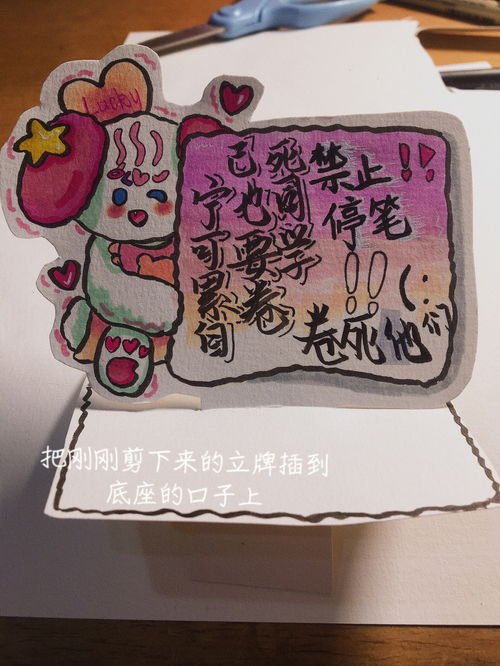 Lucky
宁可累自
己也要卷
死同学
禁止!!
停笔
!!
卷死他(们
把刚刚剪下来的立牌插到
底座的口子上